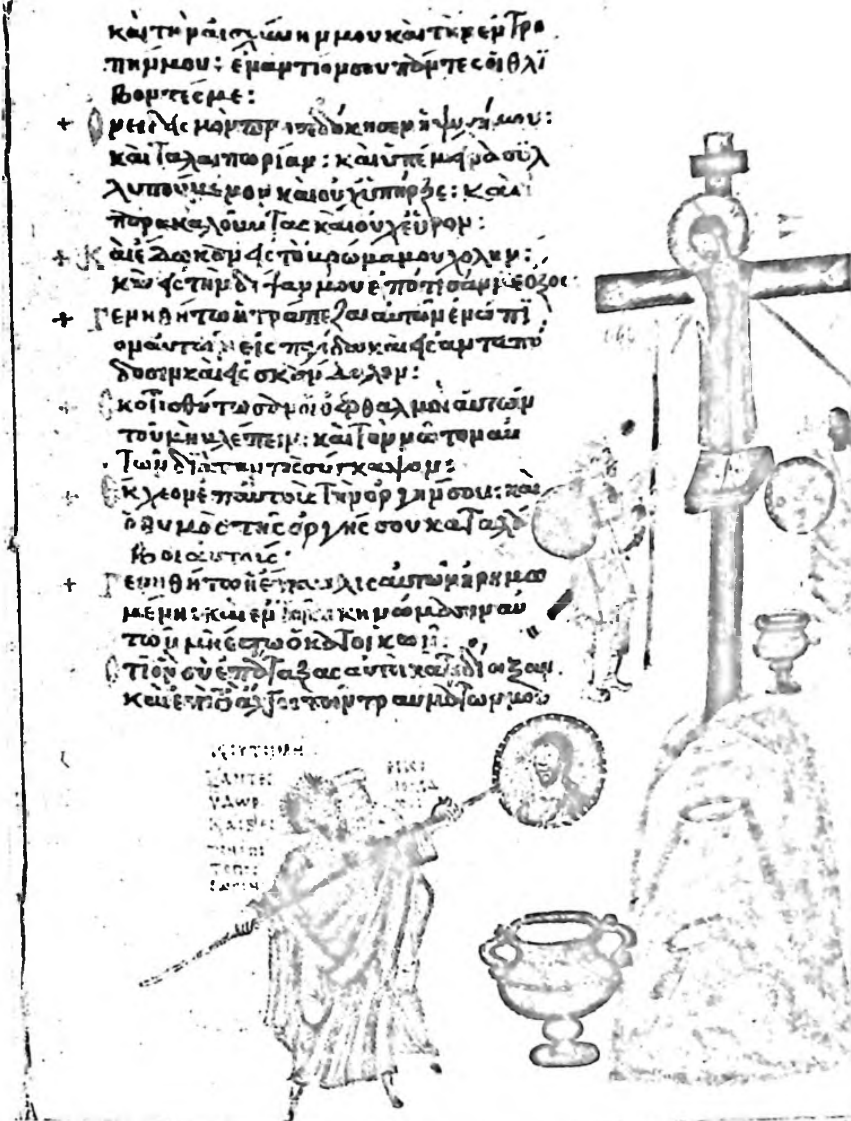 καὶ τὴν αἰσχύνην μου καὶ τὴν ἐντρο
πήν μου: ἐναντίον σου πάντες οἱ θλί
βοντές με:
+ Ὀνειδισμὸν προσεδόκησεν ἡ ψυχή μου:
καὶ ταλαιπωρίαν: καὶ ὑπέμεινα συλ
λυπούμενον καὶ οὐχ ὑπῆρξε: καὶ
παρακαλοῦντας καὶ οὐχ εὗρον:
+ Καὶ ἔδωκαν εἰς τὸ βρῶμα μου χολὴν:
καὶ εἰς τὴν δίψαν μου ἐπότισάν με ὄξος
+ Γενηθήτω ἡ τράπεζα αὐτῶν ἐνώπι
ον αὐτῶν εἰς παγίδα καὶ εἰς ἀνταπό
δοσιν καὶ εἰς σκάνδαλον:
+ Σκοτισθήτωσαν οἱ ὀφθαλμοὶ αὐτῶν
τοῦ μὴ βλέπειν: καὶ τὸν νῶτον αὐ
τῶν διὰ παντὸς σύγκαμψον:
+ Ἔκχεον ἐπ' αὐτοὺς τὴν ὀργήν σου: καὶ
ὁ θυμὸς τῆς ὀργῆς σου καταλά
βοι αὐτούς:
+ Γενηθήτω ἡ ἔπαυλις αὐτῶν ἠρημω
μένη: καὶ ἐν τοῖς σκηνώμασιν αὐ
τῶν μὴ ἔστω ὁ κατοικῶν:
Ὅτι ὃν σὺ ἐπάταξας αὐτοὶ κατεδίωξαν
καὶ ἐπὶ τὸ ἄλγος τῶν τραυμάτων μου